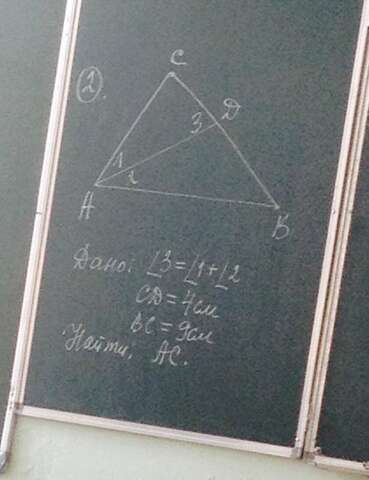 ②.
C
3 D
1
2
A
B
Дано: ∠3=∠1+∠2
CD=4см
BC=9см
Найти: AC.